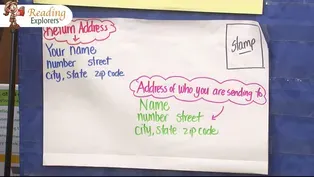 Reading
Explorers
Return Address
Your name
number street
city, state zip code
Stamp
Address of who you are sending to
Name
number street
city, state zip code